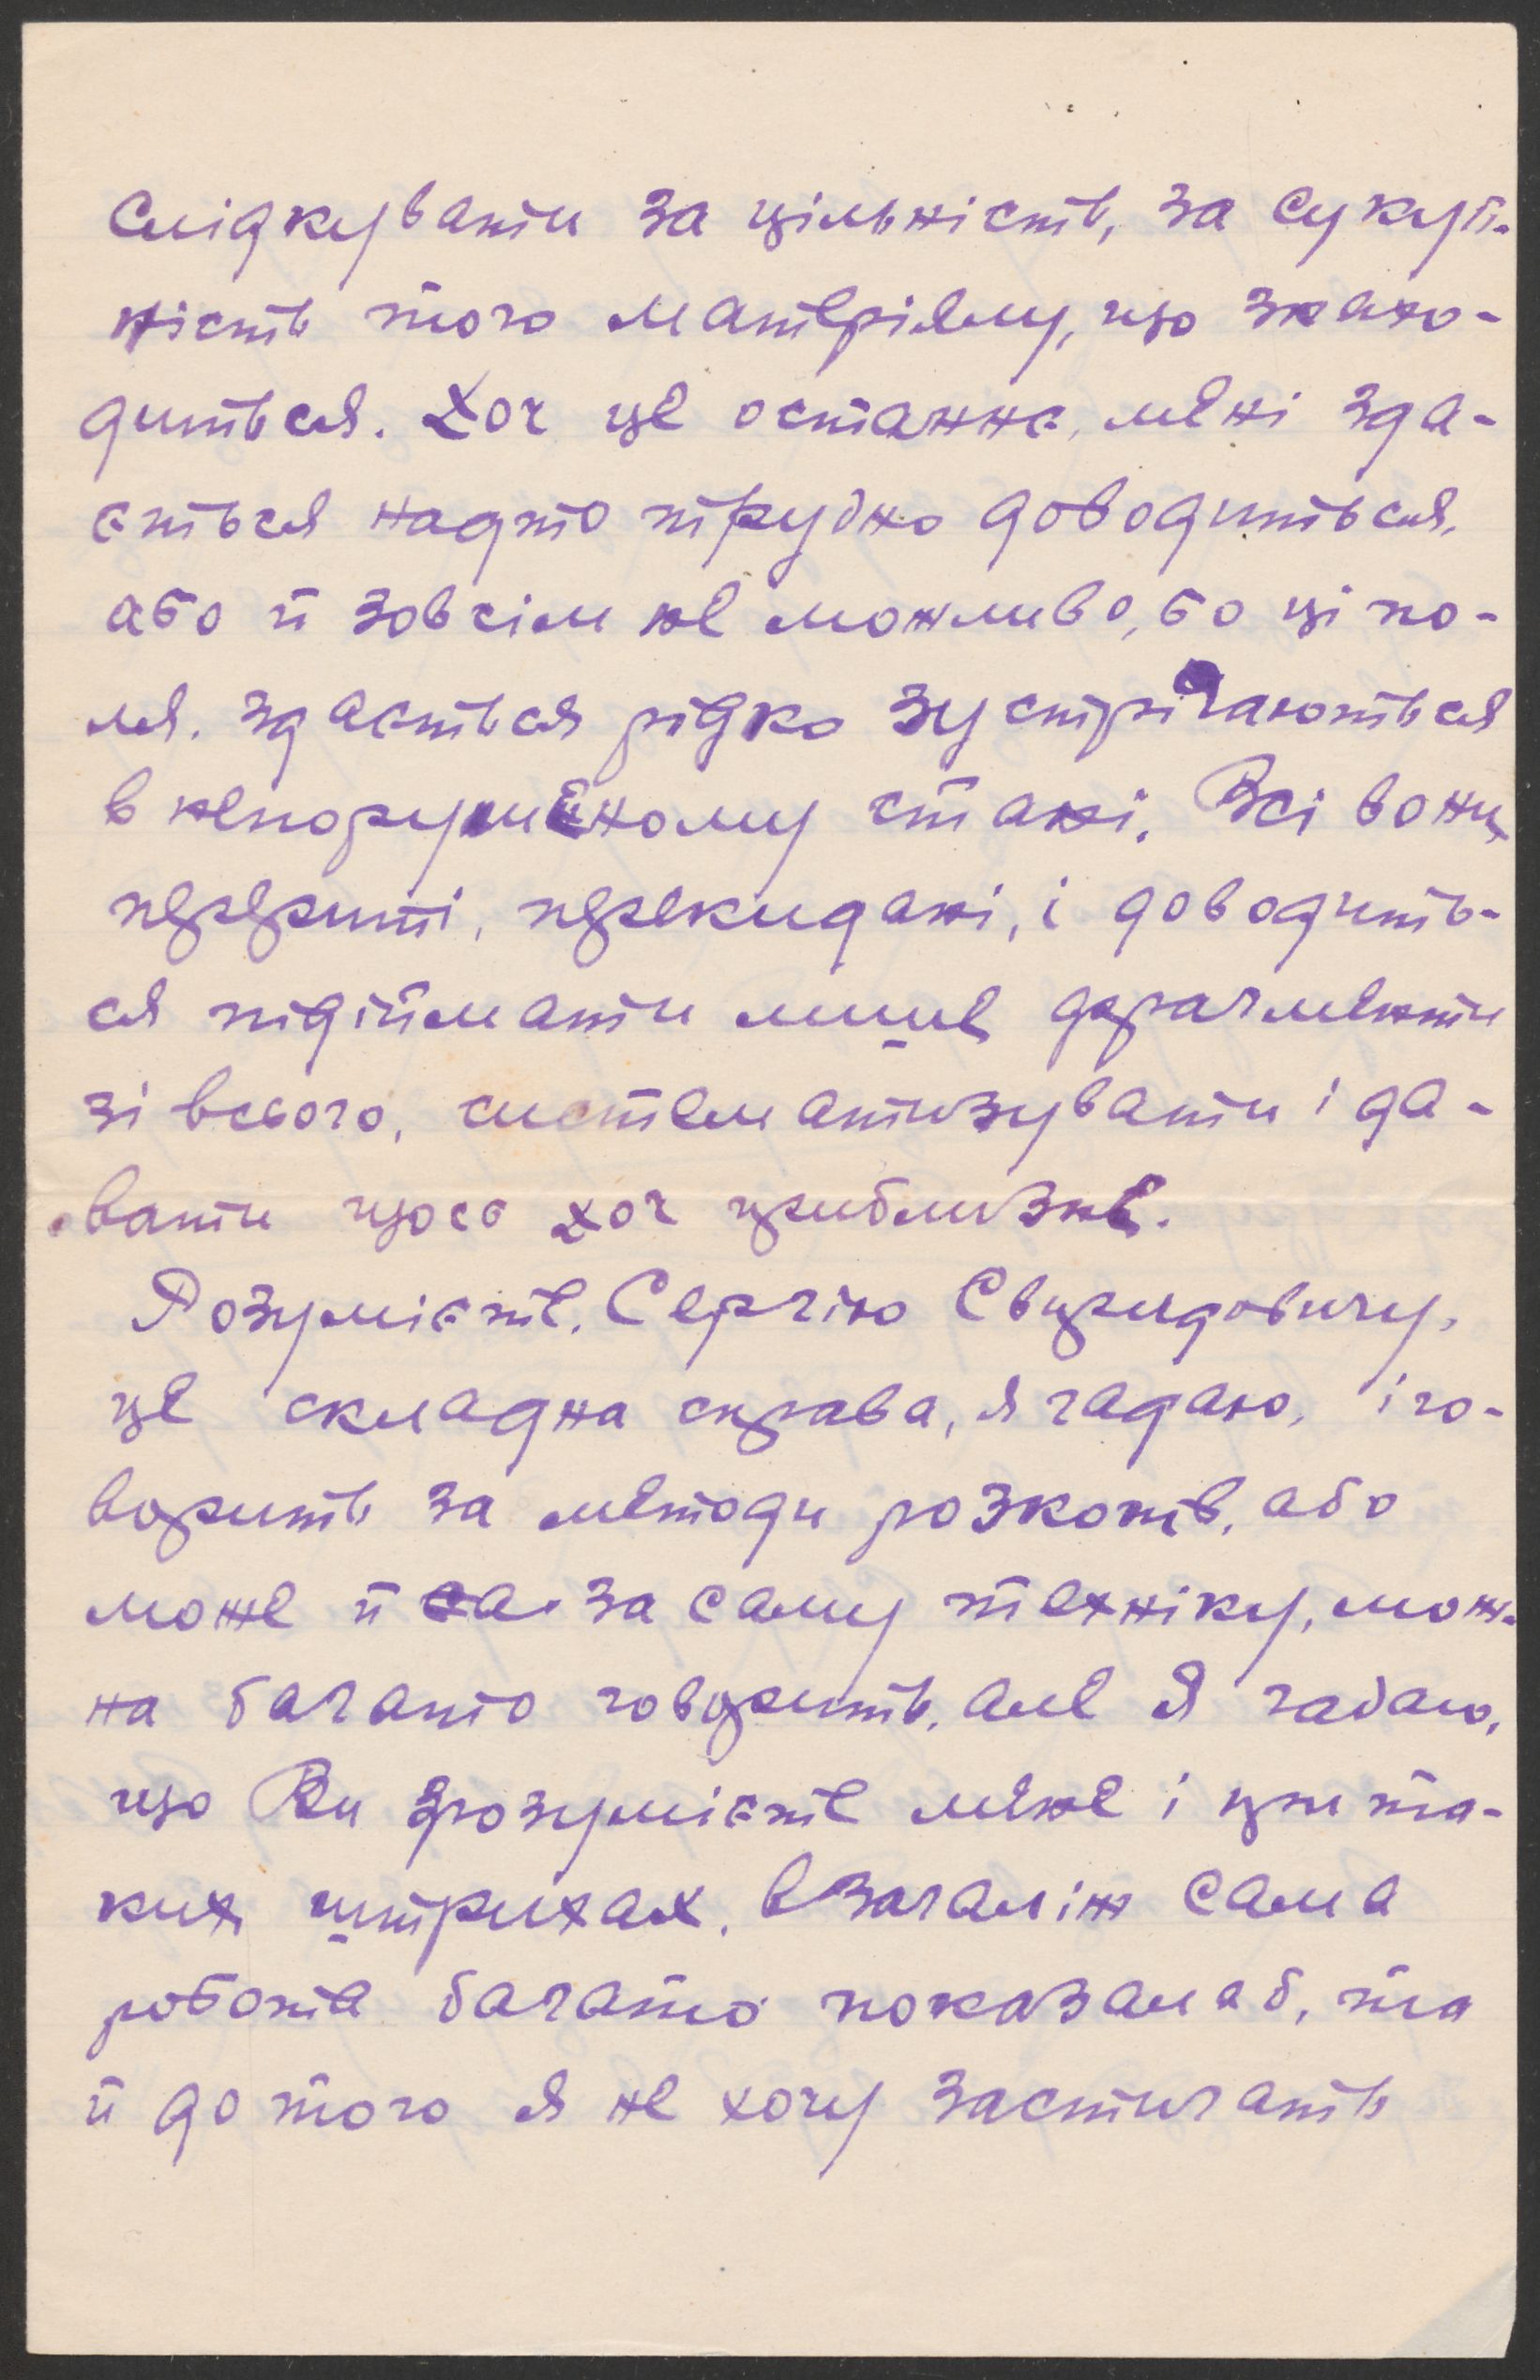 слідкувати за цільність, за сукуп-
ність того матеріялу, що знахо-
диться. Хоч це останнє, мені зда-
ється надто трудно доводиться,
або й зовсім не можливо, бо ці по-
ля, здається рідко зустрічаються
в непорушеному стані. Всі вони
перериті, перекидані, і доводить-
ся підіймати лише фрагменти
зі всього, систематизувати і да-
вати щось хоч приблизне.
Розумієте, Сергію Свиридовичу,
це складна справа, я гадаю, і го-
ворить за методи розкопів, або
може й за саму техніку, мож-
на багато говорить, але я гадаю,
що Ви зрозумієте мене і при та-
ких штрихах. Взагаліж сама
робота багато показалаб, та
й до того я не хочу застигать